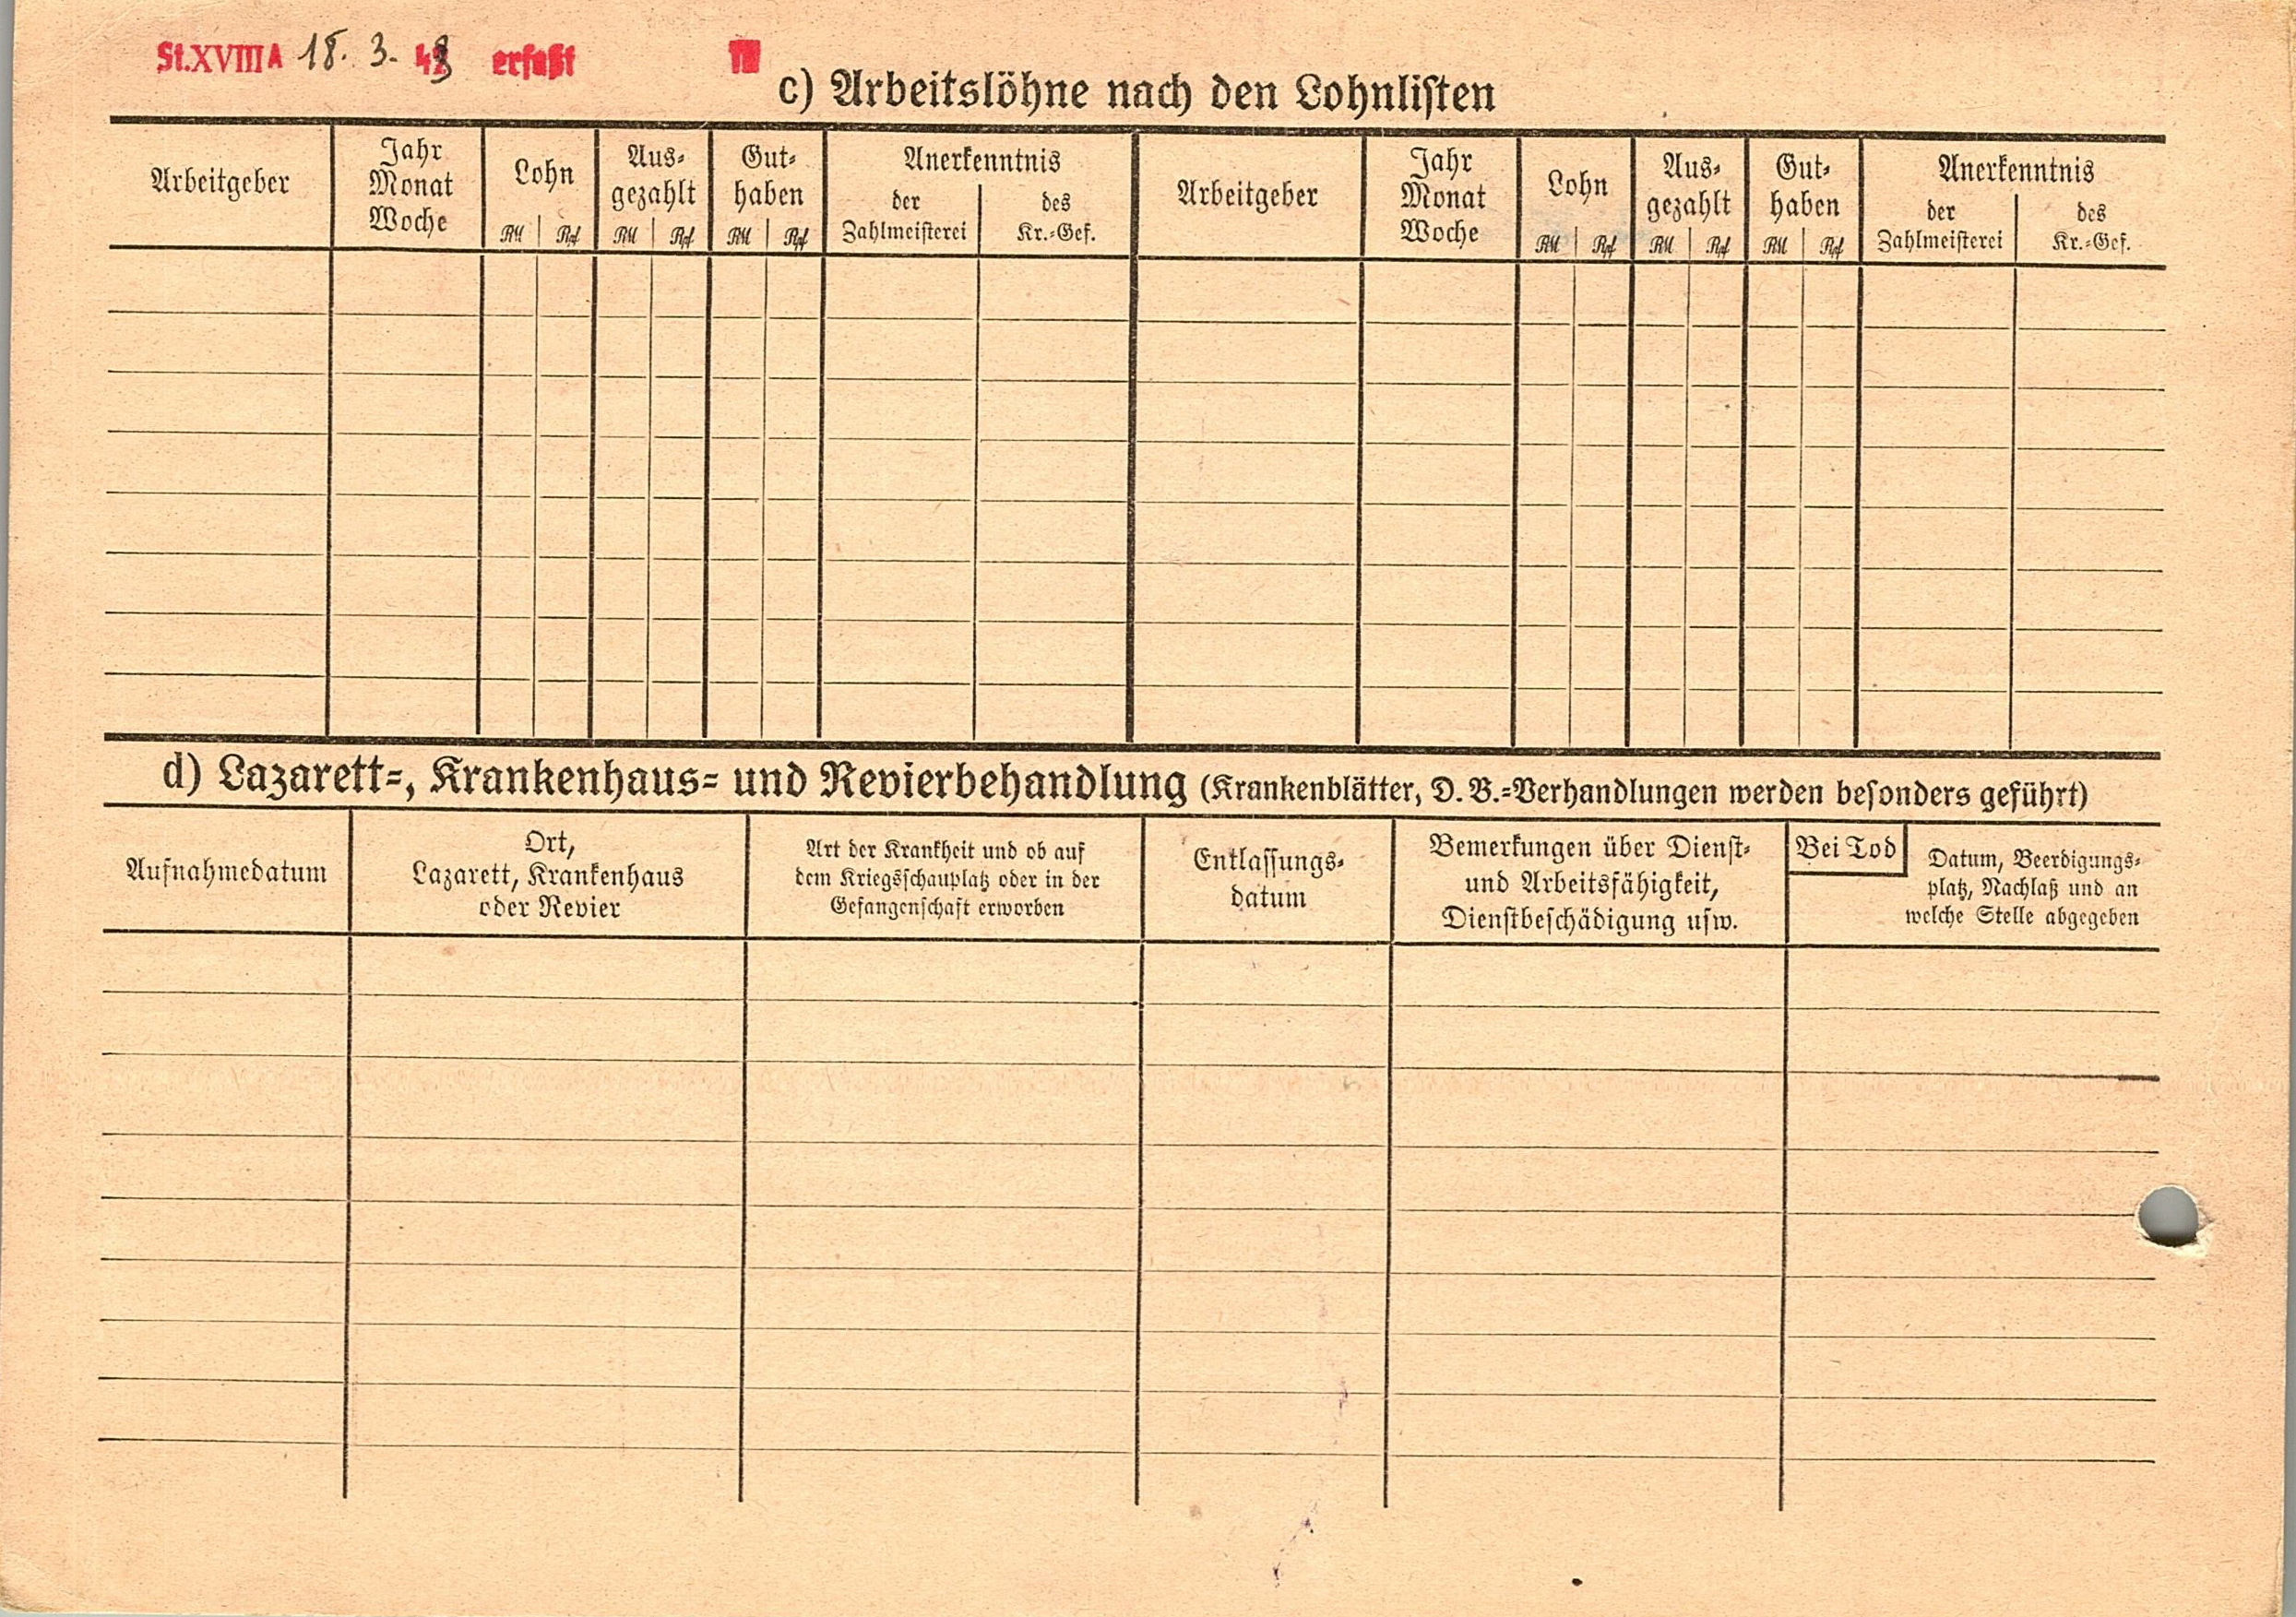 St.XVIIIA 18. 3. 43 erfaßt
c) Arbeitslöhne nach den Lohnlisten
Arbeitgeber
Jahr
Monat
Woche
Lohn
RM Rpf
Aus-
gezahlt
RM Rpf
Gut-
haben
RM Rpf
Anerkenntnis
der
Zahlmeisterei
des
Kr.-Gef.
Arbeitgeber
Jahr
Monat
Woche
Lohn
RM Rpf
Aus-
gezahlt
RM Rpf
Gut-
haben
RM Rpf
Anerkenntnis
der
Zahlmeisterei
des
Kr.-Gef.
d) Lazarett-, Krankenhaus- und Revierbehandlung (Krankenblätter, D. B.-Verhandlungen werden besonders geführt)
Aufnahmedatum
Ort,
Lazarett, Krankenhaus
oder Revier
Art der Krankheit und ob auf
dem Kriegsschauplatz oder in der
Gefangenschaft erworben
Entlassungs-
datum
Bemerkungen über Dienst-
und Arbeitsfähigkeit,
Dienstbeschädigung usw.
Bei Tod
Datum, Beerdigungs-
platz, Nachlaß und an
welche Stelle abgegeben